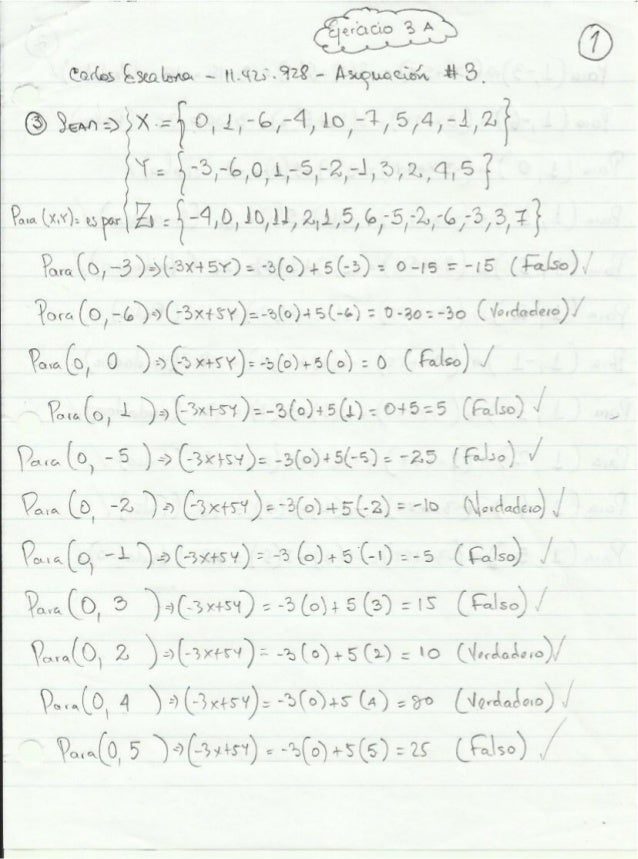 Ejercicio 3 A
1
Carlos Escalona - 11.421.928 - Asignación #3.
③ SEAN => X = { 0, 1, -6, -4, 10, -7, 5, 4, -1, 2 }
Y = { -3, -6, 0, 1, -5, -2, -1, 3, 2, 4, 5 }
Para (X,Y): es par Z = { -4, 0, 10, 11, 2, 1, 5, 6, -5, -2, -6, -3, 3, 7 }
Para (0, -3) => (-3x+5Y) = -3(0) + 5(-3) = 0 - 15 = -15 (Falso) ✓
Para (0, -6) => (-3x+5Y) = -3(0) + 5(-6) = 0 - 30 = -30 (Verdadero) ✓
Para (0, 0) => (-3x+5Y) = -3(0) + 5(0) = 0 (Falso) ✓
Para (0, 1) => (-3x+5Y) = -3(0) + 5(1) = 0+5 = 5 (Falso) ✓
Para (0, -5) => (-3x+5Y) = -3(0) + 5(-5) = -25 (Falso) ✓
Para (0, -2) => (-3x+5Y) = -3(0) + 5(-2) = -10 (Verdadero) ✓
Para (0, -1) => (-3x+5Y) = -3(0) + 5(-1) = -5 (Falso) ✓
Para (0, 3) => (-3x+5Y) = -3(0) + 5(3) = 15 (Falso) ✓
Para (0, 2) => (-3x+5Y) = -3(0) + 5(2) = 10 (Verdadero) ✓
Para (0, 4) => (-3x+5Y) = -3(0) + 5(4) = 20 (Verdadero) ✓
Para (0, 5) => (-3x+5Y) = -3(0) + 5(5) = 25 (Falso) ✓